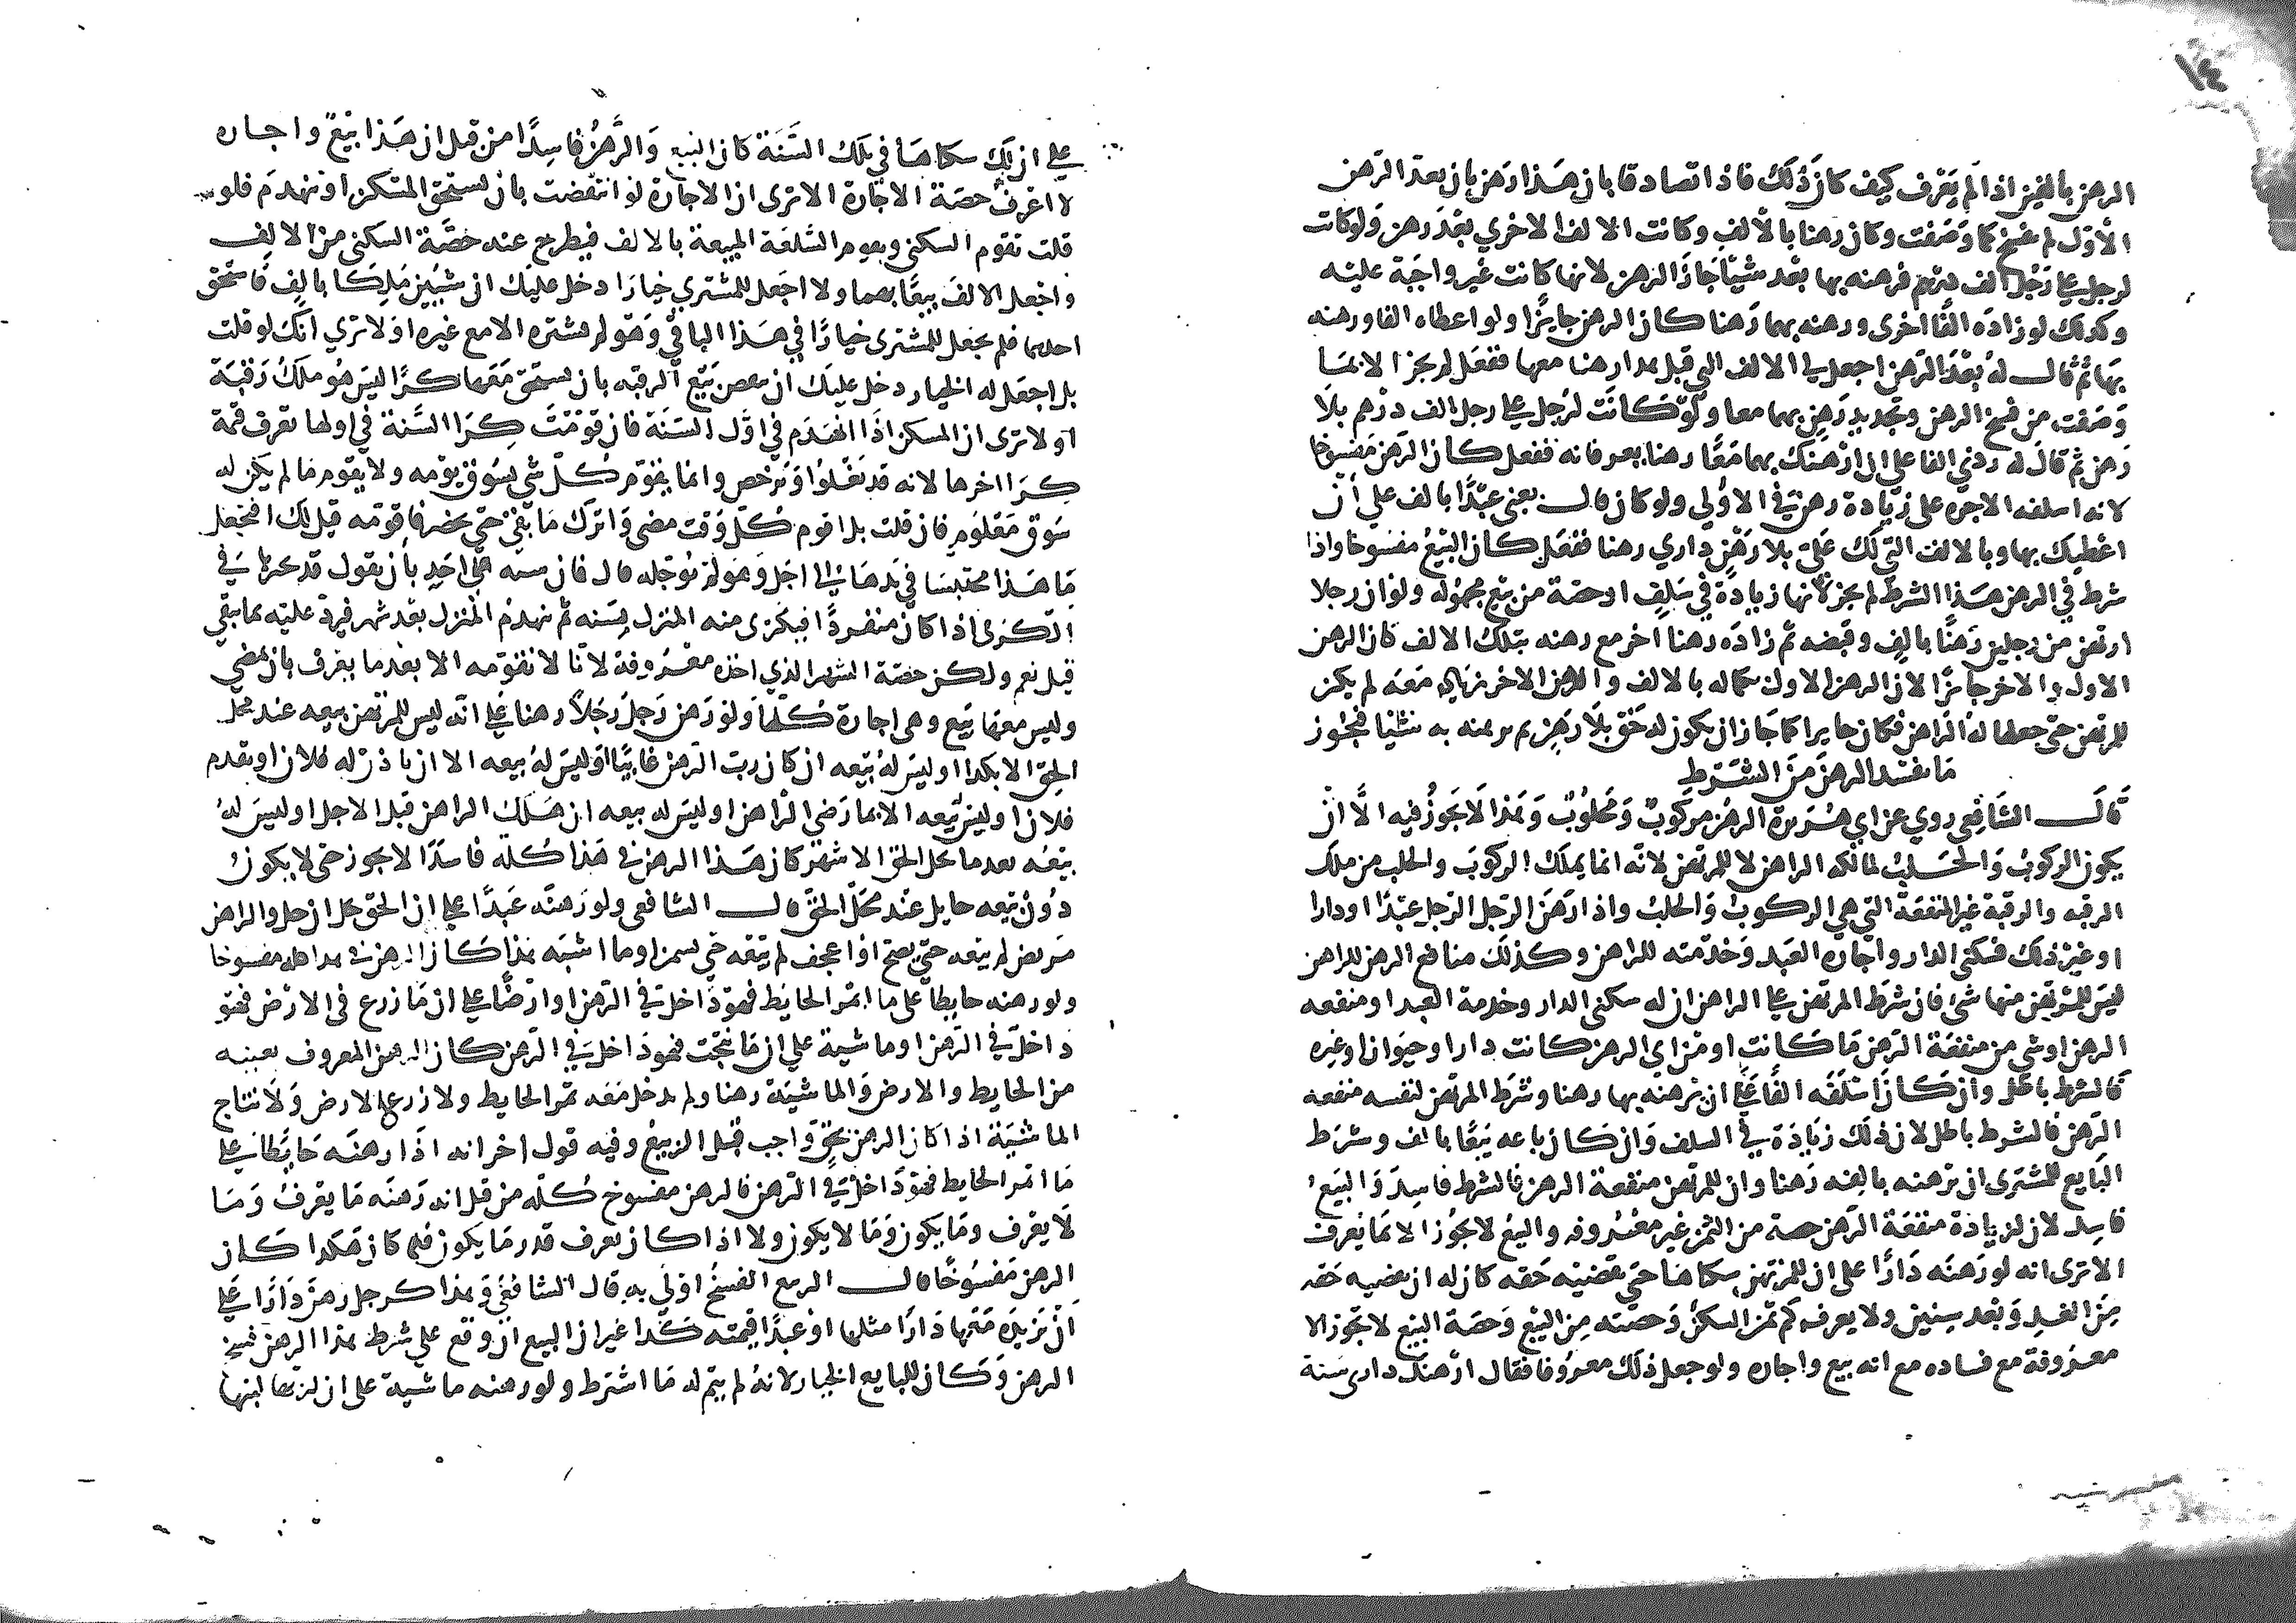 ١٤
الرهن بالفين اذا لم يعرف كيف كان ذلك فاذا تصادقا بان هذا رهن بان بعد الرهن
الاول لم يفسخ كما وصفت وكان رهنا بالالف وكانت الالف الاخري بغير رهن ولو كانت
لرجل على رجل الف درهم فرهنه بها بعد شيئا جاز الرهن لانها كانت غير واجبة عليه
وكذلك لو زاده الفا اخرى ورهنه بهما رهنا كان الرهن جايزا ولو اعطاه الفا ورهنه
بها ثم قال له بعد الرهن اجعل لي الالف التي قبل هذا رهنا معها ففعل لم يجز الا بما
وصفت من فسخ الرهن وتجديد رهن بهما معا ولو كانت لرجل على رجل الف درهم بلا
رهن ثم قال له زدني الفا على ان ارهنك بهما معا رهنا يعرفانه ففعل كان الرهن مفسوخا
لانه اسلفه الاخره على زيادة رهن في الاولي ولو كان قال بعني عبدا بالف علي ان
اعطيك بها وبالالف التي لك على بلا رهن داري رهنا ففعل كان البيع مفسوخا واذا
شرط في الرهن هذا الشرط لم يجز لانها زيادة في سلف او حصة من بيع مجهولة ولو ان رجلا
ارتهن من رجلين رهنا بالف وقبضه ثم زاده رهنا اخر مع رهنه بتلك الالف كان الرهن
الاول والاخر جايزا لان الرهن الاول بكماله بالالف والرهن الاخر زيادة معه لم يكن
للمرتهن حتى جعلها له الراهن فكان جايزا كما جاز ان يكون له حق بلا رهن ثم يرهنه به شيئا فيجوز
ما يفسد الرهن من الشرط
قال الشافعي روي عن ابي هريرة الرهن مركوب ومحلوب وهذا لا يجوز فيه الا ان
يكون الركوب والحلب لمالكه الراهن لا للمرتهن لانه انما يملك الركوب والحلب من ملك
الرقبه والرقبة غير المنفعة التي هي الركوب والحلب واذا ارهن الرجل الرجل عبدا او دارا
او غير ذلك فسكنى الدار واجاره العبد وخدمته للراهن وكذلك منافع الرهن للراهن
ليس للمرتهن منها شى فان شرط المرتهن على الراهن ان له سكنى الدار وخدمة العبد او منفعه
الرهن او شي من منفعة الرهن ما كانت او من اي الرهن كانت دارا او حيوانا او غيره
فالشرط باطل وان كان اسلفه الفا على ان يرهنه بها رهنا وشرط المرتهن لنفسه منفعه
الرهن فالشرط باطل لان ذلك زيادة في السلف وان كان باعه بيعا بالف وشرط
البايع للمشترى ان يرهنه بالفه رهنا وان للمرتهن منفعة الرهن فالشرط فاسد والبيع
فاسد لان لزيادة منفعة الرهن حصة من الثمن غير معروفه والبيع لا يجوز الا بما يعرف
الا ترى انه لو رهنه دارا على ان للمرتهن سكناها حتى يقضيه حقه كان له ان يقضيه حقه
من الغد وبعد سنين ولا يعرف كم ثمن السكن وحصته من البيع وحصة البيع لا تجوز الا
معروفة مع فساده مع انه بيع واجاره ولو جعل ذلك معروفا فقال ارهنك دارى سنة
على ان لك سكناها في تلك السنة كان البيع والرهن فاسدا من قبل ان هذا بيع واجاره
لا اعرف حصة الاجارة الا ترى ان الاجارة لو انتقضت بان يستحق المسكن او ينهدم فلو
قلت تقوم السكنى وتقوم السلعة المبيعة بالالف فيطرح عنه حصة السكنى من الالف
واجعل الالف بيعا بهما ولا اجعل للمشتري خيارا دخل عليك ان شيين ملكا بالف فاستحق
احدهما فلم يجعل للمشترى خيارا في هذا الباقي وهو لم يشتره الا مع غيره او لا تري انك لو قلت
بل اجعل له الخيار دخل عليك ان ينقص بيع الرقبه بان يستحق معها كرا ليس هو ملك رقبة
او لا ترى ان المسكن اذا انهدم في اول السنة فان قومت كرا السنة في اولها تعرف قيمة
كرا اخرها لانه قد تغلوا وترخص وانما يقوم كل شي بسوق يومه ولا يقوم ما لم يكن له
سوق معلوم فان قلت بل اقوم كل وقت مضى واترك ما بقي حتى يحضر فاقومه قيل لك افتجعل
ما هذا محتبسا في يد هذا الى اجل وهو لم يوجله قال فان شبه على احد بان تقول قد تجيز في
الكرى اذا كان منفردا فيكترى منه المنزل سنه ثم ينهدم المنزل بعد شهر فيرد عليه بما بقي
قيل نعم ولكن حصة الشهر الذي اخذه معروفة لانا لا نقومه الا بعدما يعرف بان يمضي
وليس معها بيع وهى اجارة كلها ولو رهن رجل رجلا رهنا على انه ليس للمرتهن بيعه عند محل
الحق الا بكذا او ليس له بيعه ان كان رب الرهن غايبا او ليس له بيعه الا ان ياذن له فلان او يقدم
فلان او ليس بيعه الا بما رضي الراهن او ليس له بيعه ان هلك الراهن قبل الاجل او ليس له
بيعه بعدما يحل الحق الا شهر كان هذا الرهن في هذا كله فاسدا لا يجوز حتى لا يكون
دون بيعه حايل عند محل الحق قال الشافعى ولو رهنه عبدا على ان الحق حل ان حل والراهن
مريض لم يبعه حتى يصح او اعجف لم يبعه حتى يسمن او ما اشبه هذا كان الرهن في هذا كله مفسوخا
ولو رهنه حايطا على ما اثمر الحايط فهو داخل في الرهن او ارضا على ان ما زرع فى الارض فهو
داخل في الرهن او ماشية علي ان ما نتجت فهو داخل في الرهن كان الرهن المعروف بعينه
من الحايط والارض والماشية رهنا ولم يدخل معه ثمر الحايط ولا زرع الارض ولا نتاج
الماشية اذا كان الرهن بحق واجب قبل الربيع وفيه قول اخر انه اذا رهنه حايطا على
ما اثمر الحايط فهو داخل في الرهن فالرهن مفسوخ كله من قبل انه رهنه ما يعرف وما
لا يعرف وما يكون وما لا يكون ولا اذا كان يعرف قدر ما يكون فلما كان هكذا كان
الرهن مفسوخا قال الربيع الفسخ اولى به قال الشافعي وهذا كرجل رهن دارا على
ان يزيده معها دارا مثلها او عبدا قيمته كذا غير ان البيع ان وقع على شرط هذا الرهن فسخ
الرهن وكان للبايع الخيار لانه لم يتم له ما اشترط ولو رهنه ماشية على ان لربها لبنها